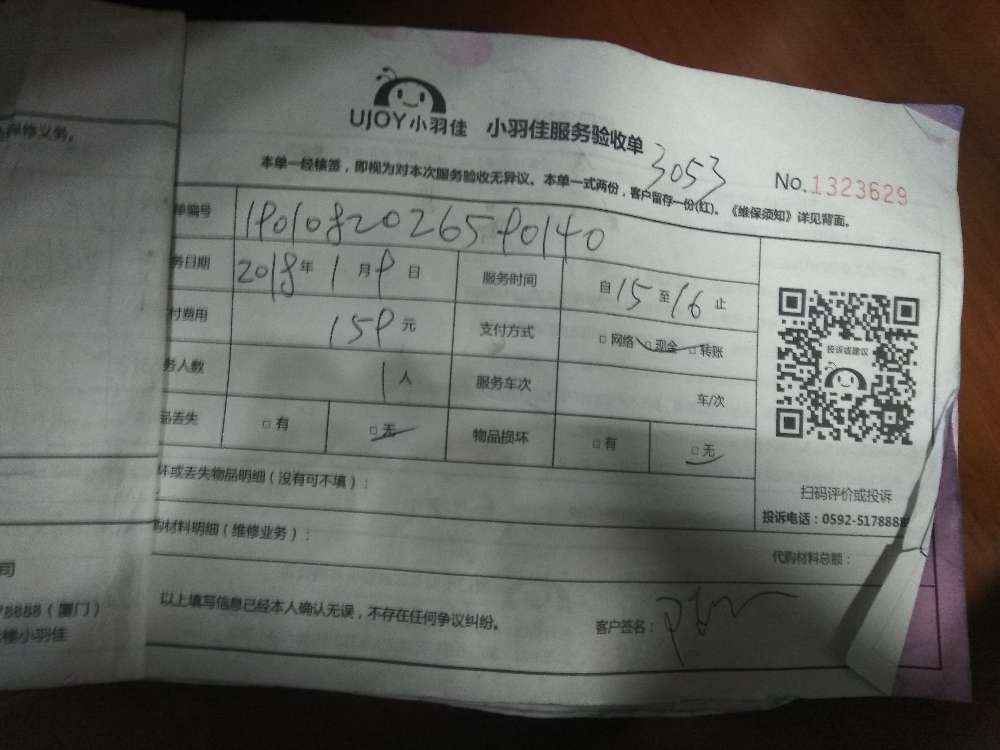 修义务。
UJOY小羽佳 小羽佳服务验收单
3053
No.1323629
本单一经核签，即视为对本次服务验收无异议。本单一式两份，客户留存一份(红)。《维保须知》详见背面。
单编号
务日期 2018年 1月9日 服务时间 自15至16止
付费用 159元 支付方式 □网络 □现金 □转账
务人数 1人 服务车次 车/次
品丢失 □有 □无 物品损坏 □有 □无
投诉或建议
扫码评价或投诉
坏或丢失物品明细（没有可不填）：
投诉电话：0592-517888
购材料明细（维修业务）：
代购材料总额：
以上填写信息已经本人确认无误，不存在任何争议纠纷。
客户签名：
司
78888（厦门）
修小羽佳